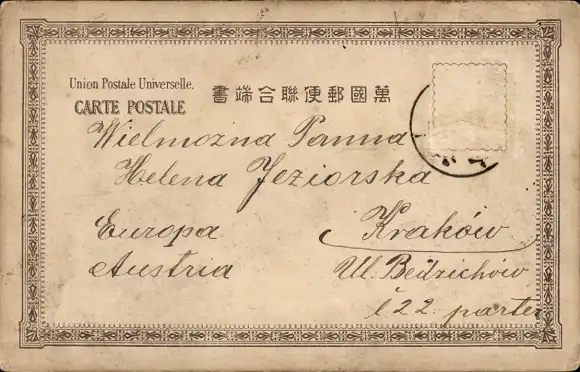 Union Postale Universelle.
CARTE POSTALE
書端合聯便郵國萬
Wielmożna Panna
Helena Jeziorska
Europa
Kraków
Austria
Ul. Bedzichów
l 22 parter